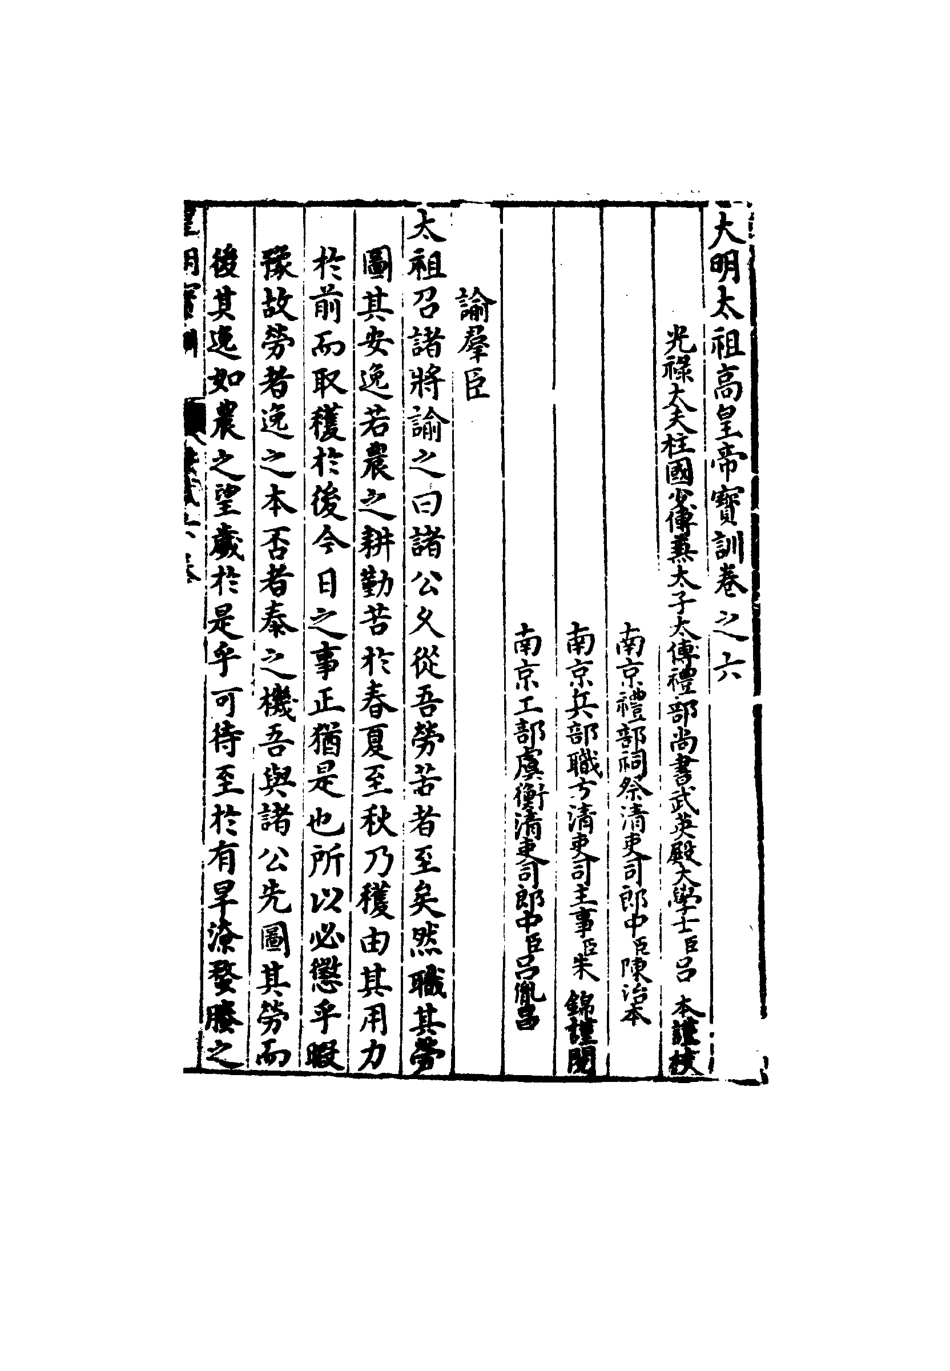 大明太祖高皇帝寶訓卷之六
光祿大夫柱國少傅兼太子太傅禮部尚書武英殿大學士臣呂 本謹校
南京禮部祠祭清吏司郎中臣陳治本
南京兵部職方清吏司主事臣朱 錦謹閱
南京工部虞衡清吏司郎中臣呂胤昌
諭羣臣
太祖召諸將諭之曰諸公久從吾勞苦者至矣然職其勞
圖其安逸若農之耕勤苦於春夏至秋乃穫由其用力
於前而取穫於後今日之事正猶是也所以必懲乎暇
豫故勞者逸之本否者泰之機吾與諸公先圖其勞而
後其逸如農之望歲於是乎可待至於有旱潦螯螣之
皇明寶訓
卷